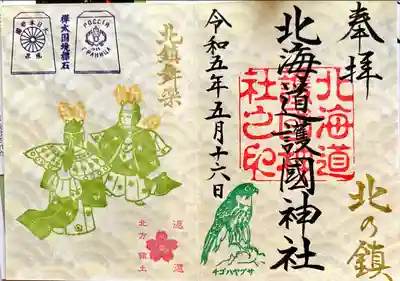 奉拝
北海道護國神社
北海道
護國神
社之印
北の鎮
令和五年五月十六日
チゴハヤブサ
北鎮舞楽
樺太国境標石
大日本帝國
境界
РОССІЯ
ГРАНИЦА
返還
北方領土